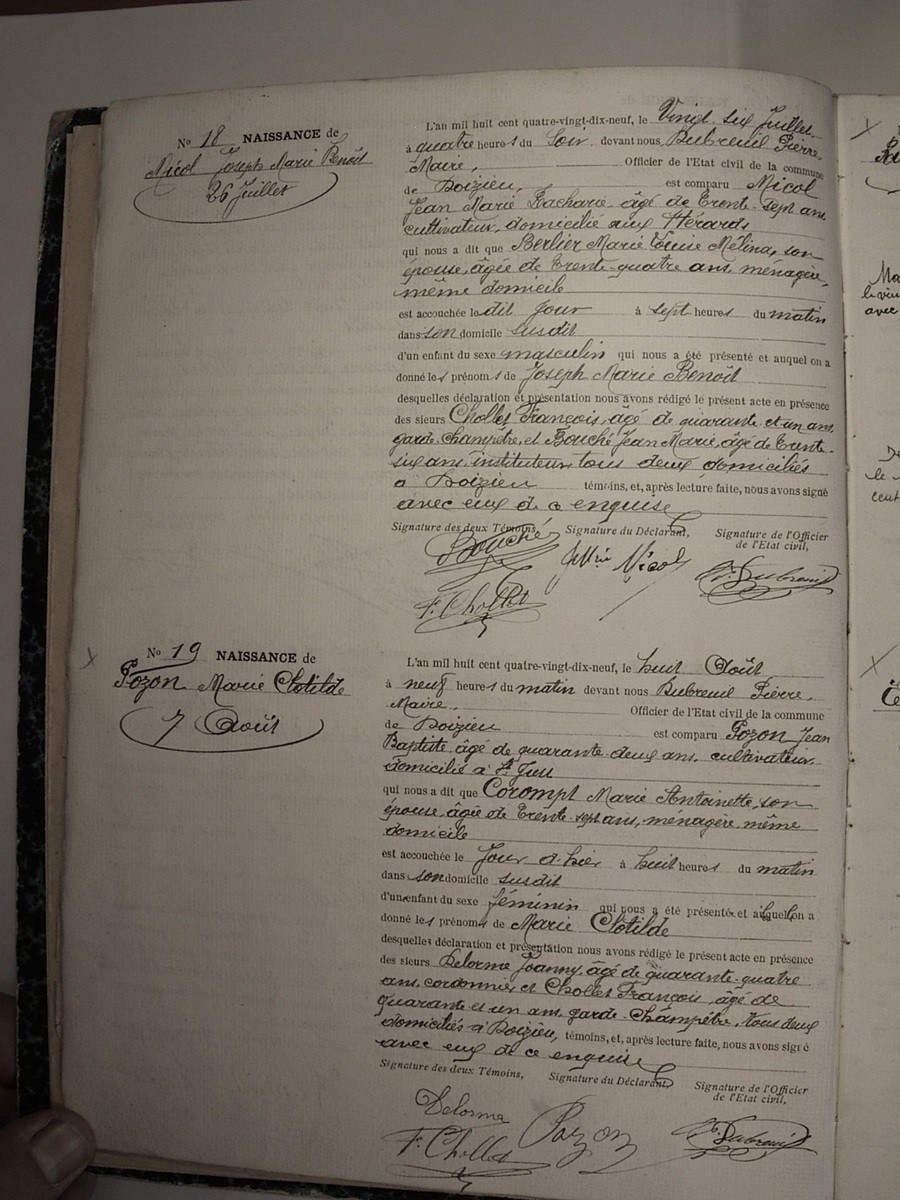 No 18 NAISSANCE de
Micol Joseph Marie Benoît
26 Juillet
L'an mil huit cent quatre-vingt-dix-neuf, le Vingt six Juillet
à quatre heures du Soir devant nous Dubreuil Pierre,
Maire, Officier de l'Etat civil de la commune
de Doizieu, est comparu Micol
Jean Marie Zacharie âgé de Trente-sept ans
cultivateur, domicilié aux Hérards
qui nous a dit que Berlier Marie Louise Mélina, son
épouse, âgée de Trente-quatre ans, ménagère,
même domicile
est accouchée le dit jour à sept heures du matin
dans son domicile susdit
d'un enfant du sexe masculin qui nous a été présenté et auquel on a
donné les prénoms de Joseph Marie Benoît
desquelles déclaration et présentation nous avons rédigé le présent acte en présence
des sieurs Chollet François, âgé de quarante et un ans,
garde-champêtre, et Bouché Jean Marie, âgé de Trente-
six ans, instituteur, tous deux domiciliés
à Doizieu témoins, et, après lecture faite, nous avons signé
avec eux de ce enquise
Signature des deux Témoins, Signature du Déclarant, Signature de l'Officier
de l'Etat civil,
Bouché Micol Dubreuil
F. Chollet
No 19 NAISSANCE de
Pozon Marie Clotilde
7 Août
L'an mil huit cent quatre-vingt-dix-neuf, le huit Août
à neuf heures du matin devant nous Dubreuil Pierre,
Maire, Officier de l'Etat civil de la commune
de Doizieu est comparu Pozon Jean
Baptiste, âgé de quarante-deux ans, cultivateur
domicilié à St Just
qui nous a dit que Corompt Marie Antoinette, son
épouse, âgée de Trente-sept ans, ménagère, même
domicile
est accouchée le Jour d'hier à huit heures du matin
dans son domicile susdit
d'un enfant du sexe féminin qui nous a été présenté et auquel on a
donné les prénoms de Marie Clotilde
desquelles déclaration et présentation nous avons rédigé le présent acte en présence
des sieurs Delorme Joanny, âgé de quarante-quatre
ans, cordonnier et Chollet François, âgé de
quarante et un ans, garde-champêtre, tous deux
domiciliés à Doizieu, témoins, et, après lecture faite, nous avons signé
avec eux de ce enquise
Signature des deux Témoins, Signature du Déclarant, Signature de l'Officier
de l'Etat civil,
Delorme Pozon Dubreuil
F. Chollet
avec
le
cent